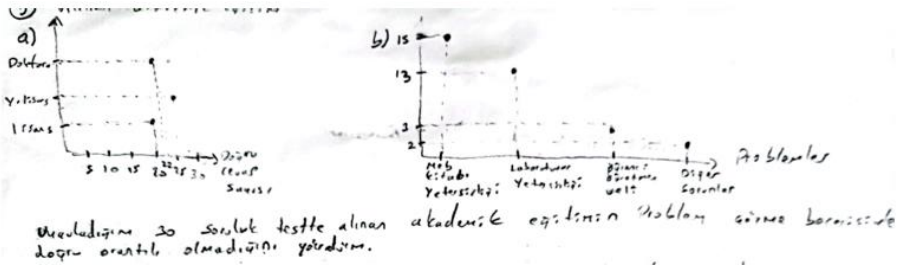 a)
Doktora
Y. Lisans
Lisans
5 10 15 20 22 25 30
Doğru
cevap
Sayısı
b) 15
13
3
2
Problemler
Ders
Kitabı
Yetersizliği
Laboratuvar
Yetersizliği
Öğrenci
Öğretmen
veli
Diğer
Sorunlar
Uyguladığım 30 soruluk testte alınan akademik eğitimin Problem çözme becerisinde
doğru orantılı olmadığını gördüm.